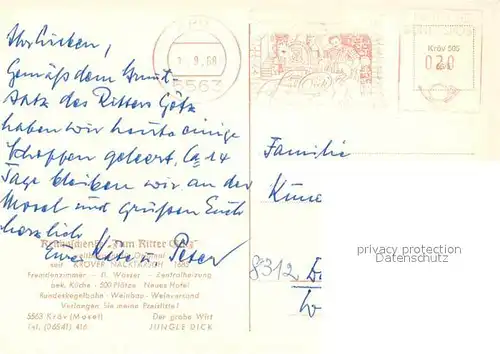 Ihr Lieben,
Gemäß dem Grund-
satz des Ritters Götz
haben wir heute einige
Schoppen geleert. Ca 14
Tage bleiben wir an der
Mosel und grüßen Euch
herzlich
Eure Käte u. Peter
5563
-2.9.68
Kröv 505
020
Familie
8312
"Zum Ritter Götz"
seit KRÖVER NACKTARSCH
Fremdenzimmer - fl. Wasser - Zentralheizung
bek. Küche - 500 Plätze Neues Hotel
Bundeskegelbahn - Weinbau - Weinversand
Verlangen Sie meine Preisliste!
5563 Kröv (Mosel) Der grobe Wirt
Tel. (06541) 416 JUNGLE DICK
privacy protection
Datenschutz